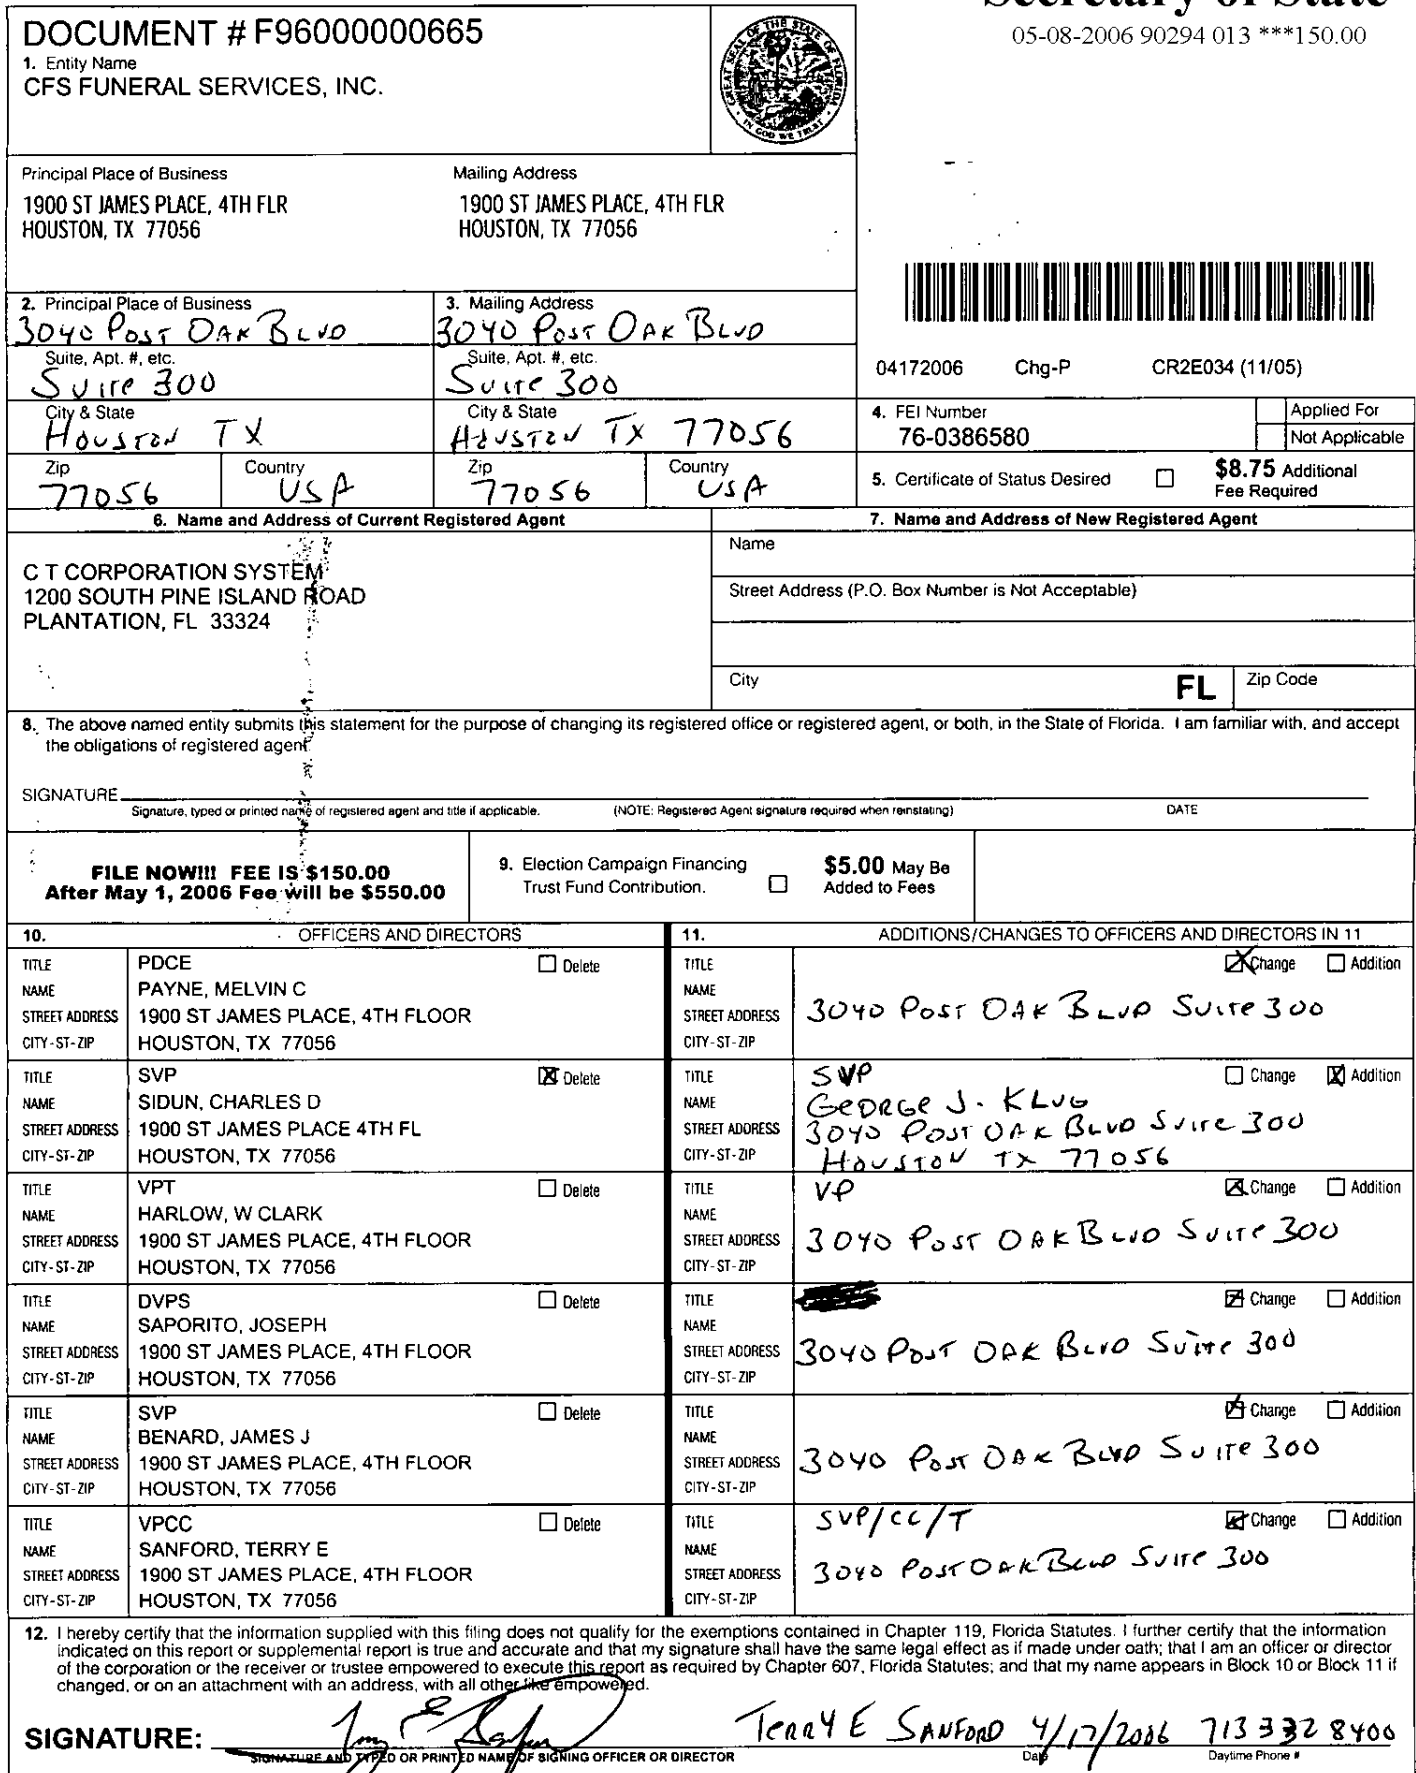 Secretary of State
05-08-2006 90294 013 ***150.00
DOCUMENT # F96000000665
1. Entity Name
CFS FUNERAL SERVICES, INC.
GREAT SEAL OF THE STATE OF FLORIDA
IN GOD WE TRUST
Principal Place of Business
1900 ST JAMES PLACE, 4TH FLR
HOUSTON, TX 77056
Mailing Address
1900 ST JAMES PLACE, 4TH FLR
HOUSTON, TX 77056
2. Principal Place of Business
3040 POST OAK BLVD
Suite, Apt. #, etc.
SUITE 300
City & State
HOUSTON TX
Zip
77056
Country
USA
3. Mailing Address
3040 POST OAK BLVD
Suite, Apt. #, etc.
SUITE 300
City & State
HOUSTON TX 77056
Zip
77056
Country
USA
04172006 Chg-P CR2E034 (11/05)
4. FEI Number
76-0386580
Applied For
Not Applicable
5. Certificate of Status Desired
$8.75 Additional
Fee Required
6. Name and Address of Current Registered Agent
C T CORPORATION SYSTEM
1200 SOUTH PINE ISLAND ROAD
PLANTATION, FL 33324
7. Name and Address of New Registered Agent
Name
Street Address (P.O. Box Number is Not Acceptable)
City FL Zip Code
8. The above named entity submits this statement for the purpose of changing its registered office or registered agent, or both, in the State of Florida. I am familiar with, and accept
the obligations of registered agent
SIGNATURE
Signature, typed or printed name of registered agent and title if applicable. (NOTE: Registered Agent signature required when reinstating) DATE
FILE NOW!!! FEE IS $150.00
After May 1, 2006 Fee will be $550.00
9. Election Campaign Financing
Trust Fund Contribution.
$5.00 May Be
Added to Fees
10. OFFICERS AND DIRECTORS
TITLE PDCE Delete
NAME PAYNE, MELVIN C
STREET ADDRESS 1900 ST JAMES PLACE, 4TH FLOOR
CITY-ST-ZIP HOUSTON, TX 77056
TITLE SVP X Delete
NAME SIDUN, CHARLES D
STREET ADDRESS 1900 ST JAMES PLACE 4TH FL
CITY-ST-ZIP HOUSTON, TX 77056
TITLE VPT Delete
NAME HARLOW, W CLARK
STREET ADDRESS 1900 ST JAMES PLACE, 4TH FLOOR
CITY-ST-ZIP HOUSTON, TX 77056
TITLE DVPS Delete
NAME SAPORITO, JOSEPH
STREET ADDRESS 1900 ST JAMES PLACE, 4TH FLOOR
CITY-ST-ZIP HOUSTON, TX 77056
TITLE SVP Delete
NAME BENARD, JAMES J
STREET ADDRESS 1900 ST JAMES PLACE, 4TH FLOOR
CITY-ST-ZIP HOUSTON, TX 77056
TITLE VPCC Delete
NAME SANFORD, TERRY E
STREET ADDRESS 1900 ST JAMES PLACE, 4TH FLOOR
CITY-ST-ZIP HOUSTON, TX 77056
11. ADDITIONS/CHANGES TO OFFICERS AND DIRECTORS IN 11
TITLE X Change Addition
NAME
STREET ADDRESS 3040 POST OAK BLVD SUITE 300
CITY-ST-ZIP
TITLE SVP Change X Addition
NAME GEORGE J. KLUG
STREET ADDRESS 3040 POST OAK BLVD SUITE 300
CITY-ST-ZIP HOUSTON TX 77056
TITLE VP X Change Addition
NAME
STREET ADDRESS 3040 POST OAK BLVD SUITE 300
CITY-ST-ZIP
TITLE X Change Addition
NAME
STREET ADDRESS 3040 POST OAK BLVD SUITE 300
CITY-ST-ZIP
TITLE X Change Addition
NAME
STREET ADDRESS 3040 POST OAK BLVD SUITE 300
CITY-ST-ZIP
TITLE SVP/CC/T X Change Addition
NAME
STREET ADDRESS 3040 POST OAK BLVD SUITE 300
CITY-ST-ZIP
12. I hereby certify that the information supplied with this filing does not qualify for the exemptions contained in Chapter 119, Florida Statutes. I further certify that the information
indicated on this report or supplemental report is true and accurate and that my signature shall have the same legal effect as if made under oath; that I am an officer or director
of the corporation or the receiver or trustee empowered to execute this report as required by Chapter 607, Florida Statutes; and that my name appears in Block 10 or Block 11 if
changed, or on an attachment with an address, with all other like empowered.
SIGNATURE: Terry E Sanford TERRY E SANFORD 4/17/2006 713 332 8400
SIGNATURE AND TYPED OR PRINTED NAME OF SIGNING OFFICER OR DIRECTOR Date Daytime Phone #